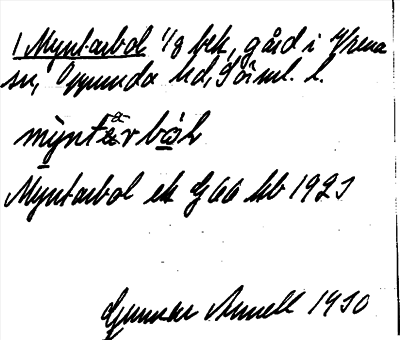 1 Myntarbol 1/8 bek, gård i Vrena
sn, Oppunda hd, Söml. l.
myntærbol
Myntarbol ek G 66 kb 1921
Gunnar Arnell 1930